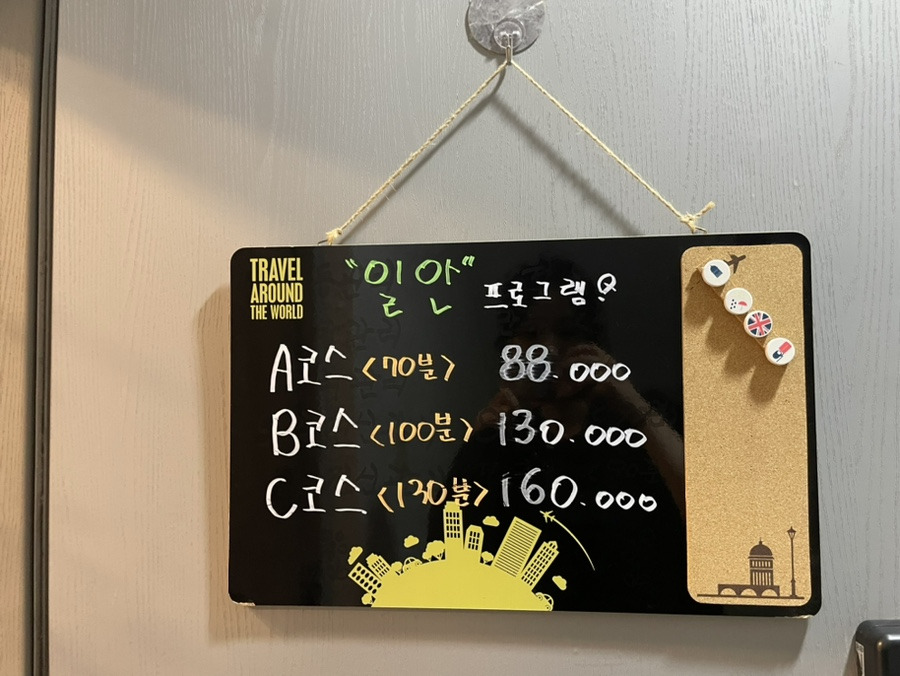 TRAVEL
AROUND
THE WORLD
"일 안" 프로그램
A코스 <70분> 88.000
B코스 <100분> 130.000
C코스 <130분> 160.000